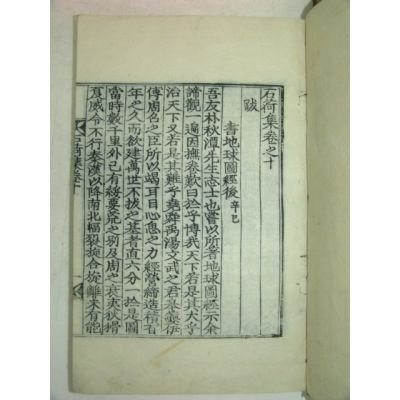 石荷集卷之十
跋
書地球圖經後 辛巳
吾友朴秋潭先生志士也嘗以所著地球圖經示余
諦觀一過因撫卷歎曰於乎博哉天下若是其大乎
治天下又若是其難乎堯舜禹湯文武之君皐夔伊
傅周召之臣所以竭耳目心思之力經營締造積百
年之久而欲建萬世不拔之基者直六分一於是圖
當時數千里外已有綏要荒之別及周之衰夷狄猾
夏威令不行秦漢以降南北幅裂旋合旋離未有能
石荷集卷十